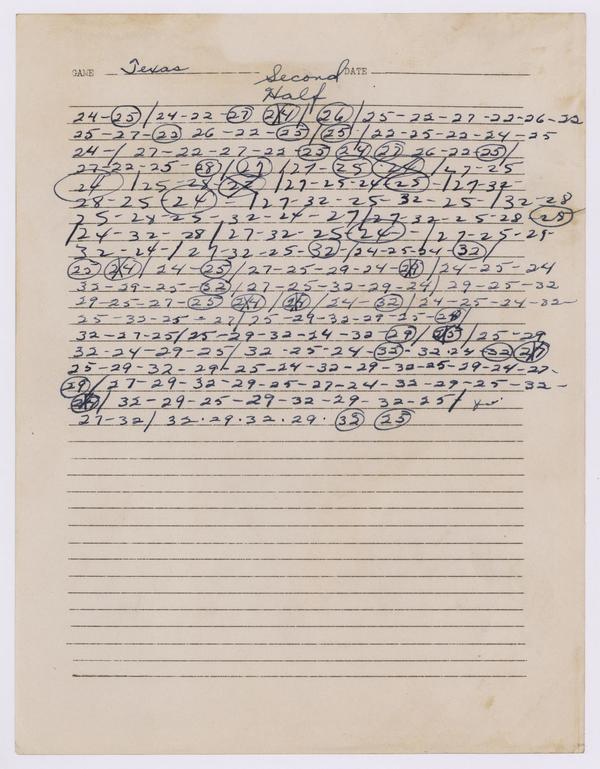 GAME Texas Second DATE
Half
24-25/24-22-27 24/26/25-22-27-22-26-22
25-27-22 26-22-25/25/22-25-22-24-25
24-/27-22-27-22-25 24 27 26-22-25/
27-22-25-28/27/27-25 /27-25
24/25-28-27/27-25-24-25-/27-32-
28-25 24-/27-32-25-32-25-/32-28
25-28-25-32-24-27/27-32-25-28 28
/24-32-28/27-32-25 24-/27-25-29-
32-24-/27-32-25-32/24-25-24 32/
25 24/24-25/27-25-29-24-29/24-25-24
32-29-25-32/27-25-32-29-24/29-25-32
29-25-27-25 24/24/24-32/24-25-24-32-
25-32-25-27/25-29-32-29-25-24
32-27-25/25-29-32-24-32-29/25/25-29
32-24-29-25/32-25-24-32-32-24-22 27
25-29-32-29-25-24-32-29-32-25-29-24-27-
29/27-29-32-29-25-27-24-32-29-25-32-
/32-29-25-29-32-29-32-25/
27-32/32.29.32.29. 32 25